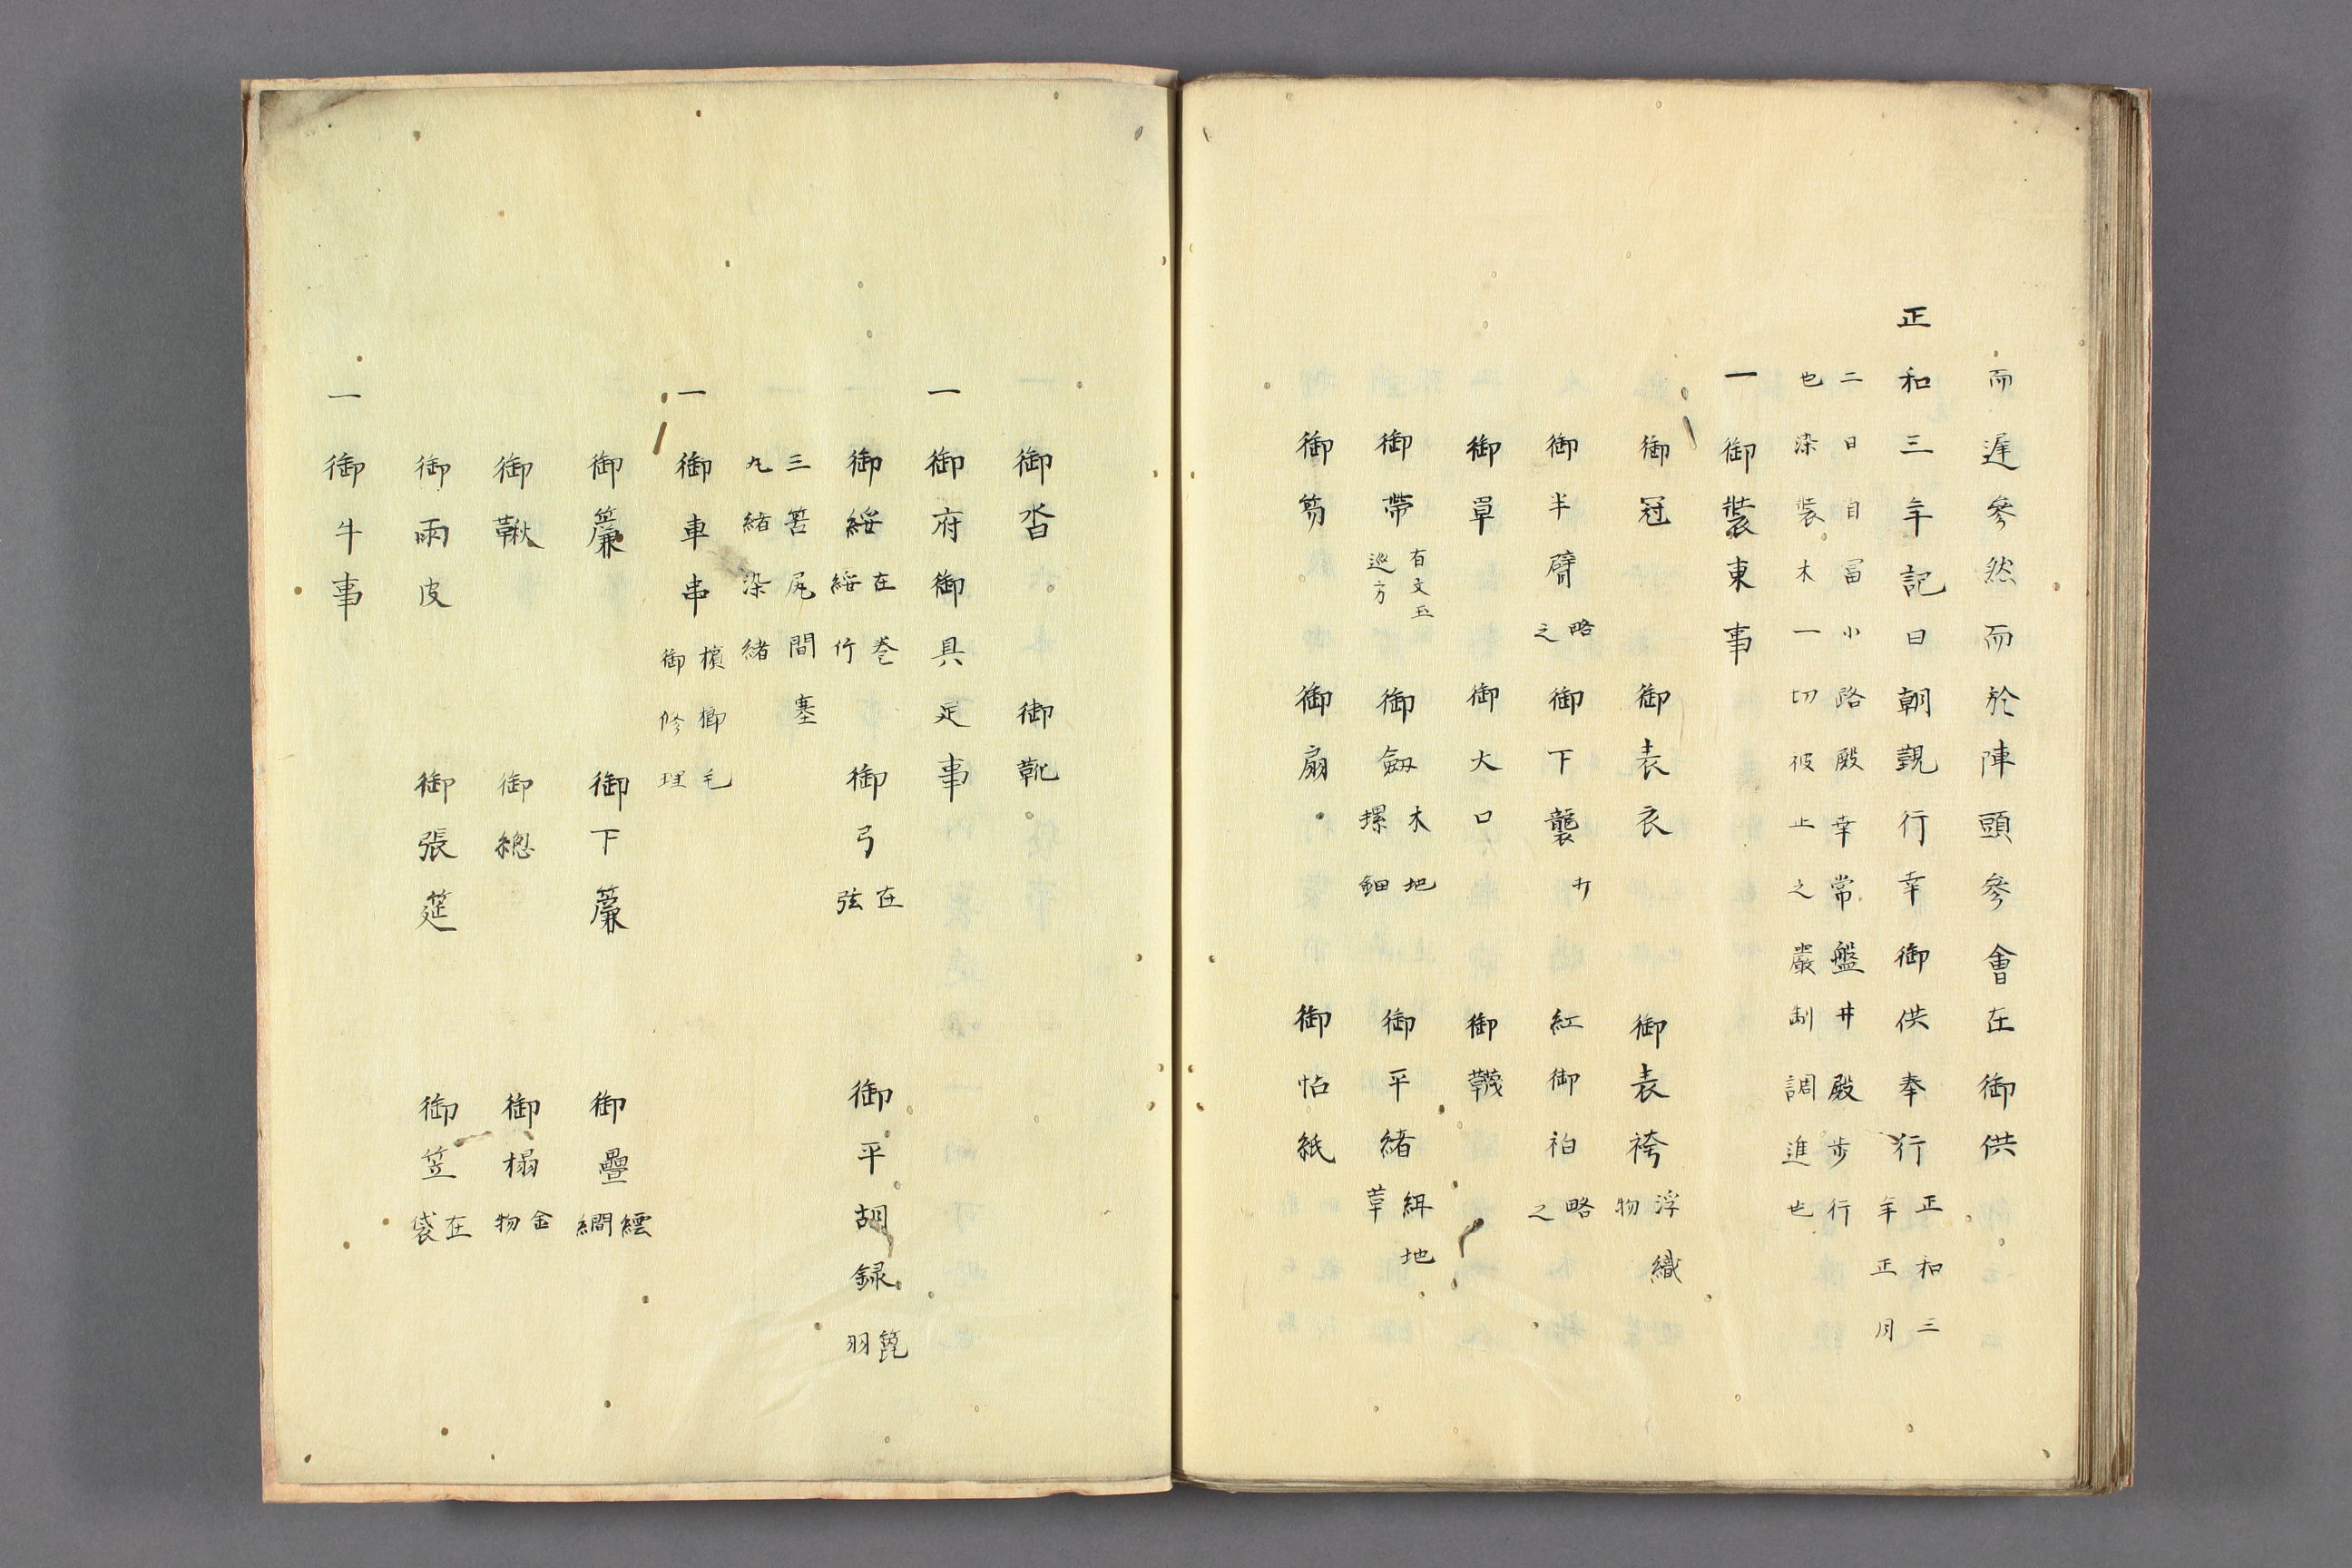 而遅參然而於陣頭參會在御供
正和三年記曰朝覲行幸御供奉行正和三年正月
二日自冨小路殿幸常盤井殿歩行
也染装木一切被止之嚴制調進也
一御装束事
御冠 御表衣 御表袴浮織物
御半臂略之 御下襲ナ 紅御袙略之
御單 御大口 御韈
御帯有文玉巡方 御劔木地螺鈿 御平緒緂地
御笏 御扇 御帖紙
御沓 御靴
一御府御具足事
御緌在巻緌行 御弓在弦 御平胡録箆羽
三筈尻間塞
丸緒染緒
一御車事檳榔毛御修理
御簾 御下簾 御疊繧繝
御鞦 御總 御榻金物
御雨皮 御張莚 御笠在袋
一御牛事